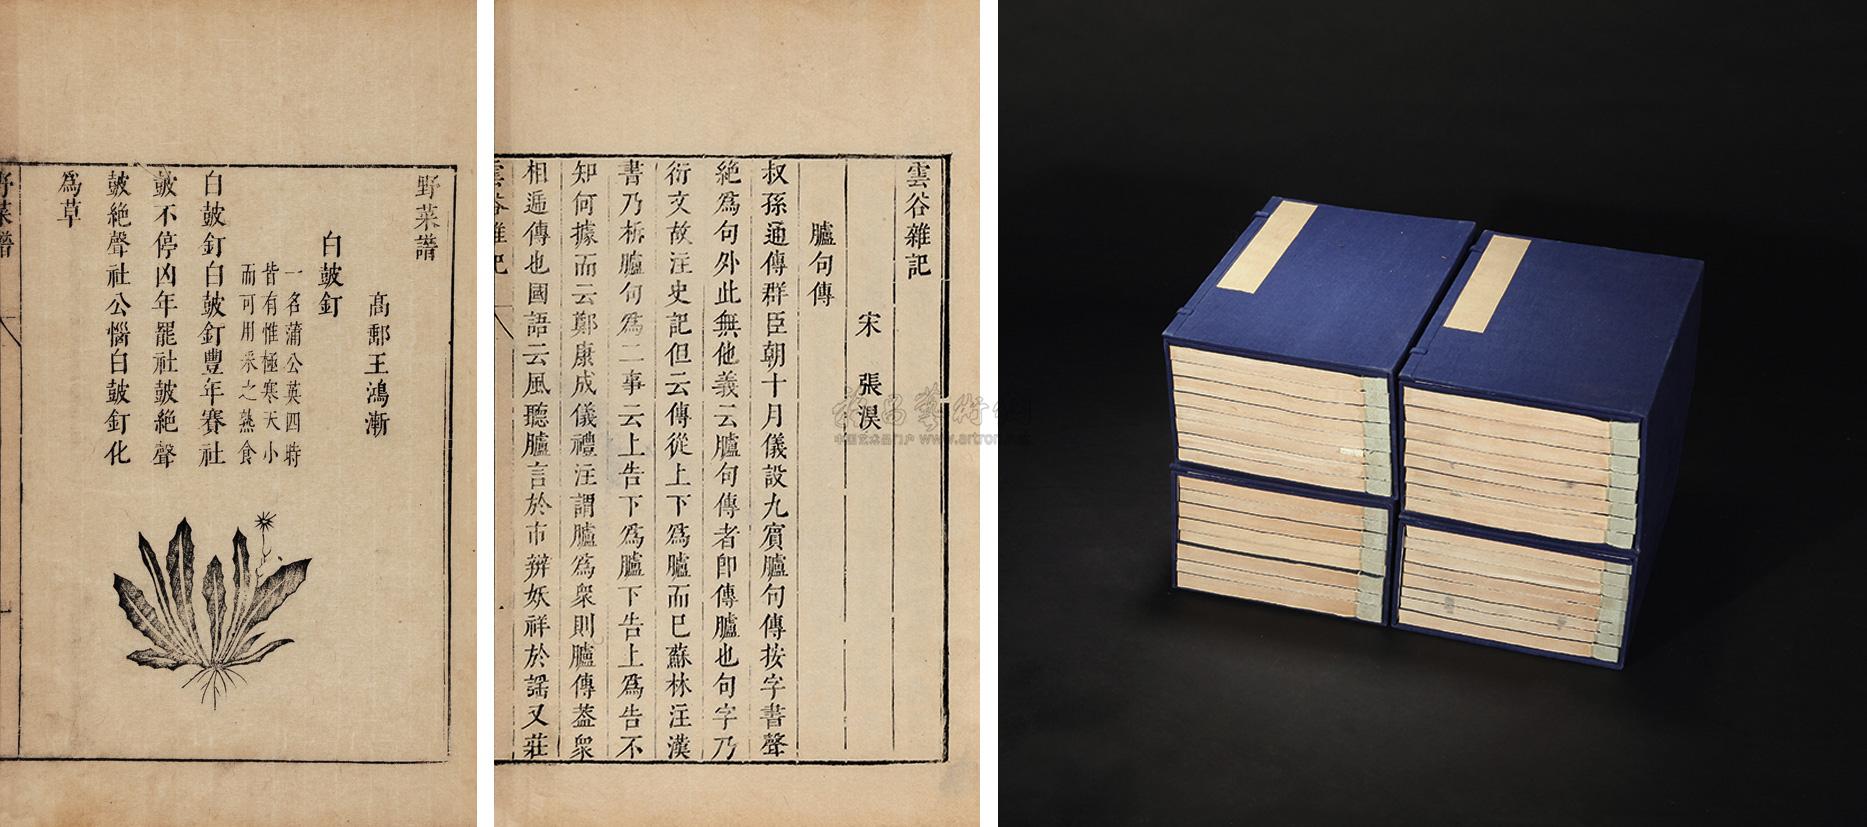 野菜譜
高郵王鴻漸
白皷釘
一名蒲公英四時
皆有惟極寒天小
而可用采之熟食
白皷釘白皷釘豐年賽社
皷不停凶年罷社皷絶聲
皷絶聲社公惱白皷釘化
為草
野菜譜
雲谷雜記
宋 張淏
臚句傳
叔孫通傳群臣朝十月儀設九賓臚句傳按字書聲
絶爲句外此無他義云臚句傳者即傳臚也句字乃
衍文故注史記但云傳從上下爲臚而已蘇林注漢
書乃析臚句爲二事云上告下爲臚下告上爲告不
知何據而云鄭康成儀禮注謂臚爲衆則臚傳葢衆
相逓傳也國語云風聽臚言於市辨妖祥於謡又莊
雲谷雜記
一
www.artron.net